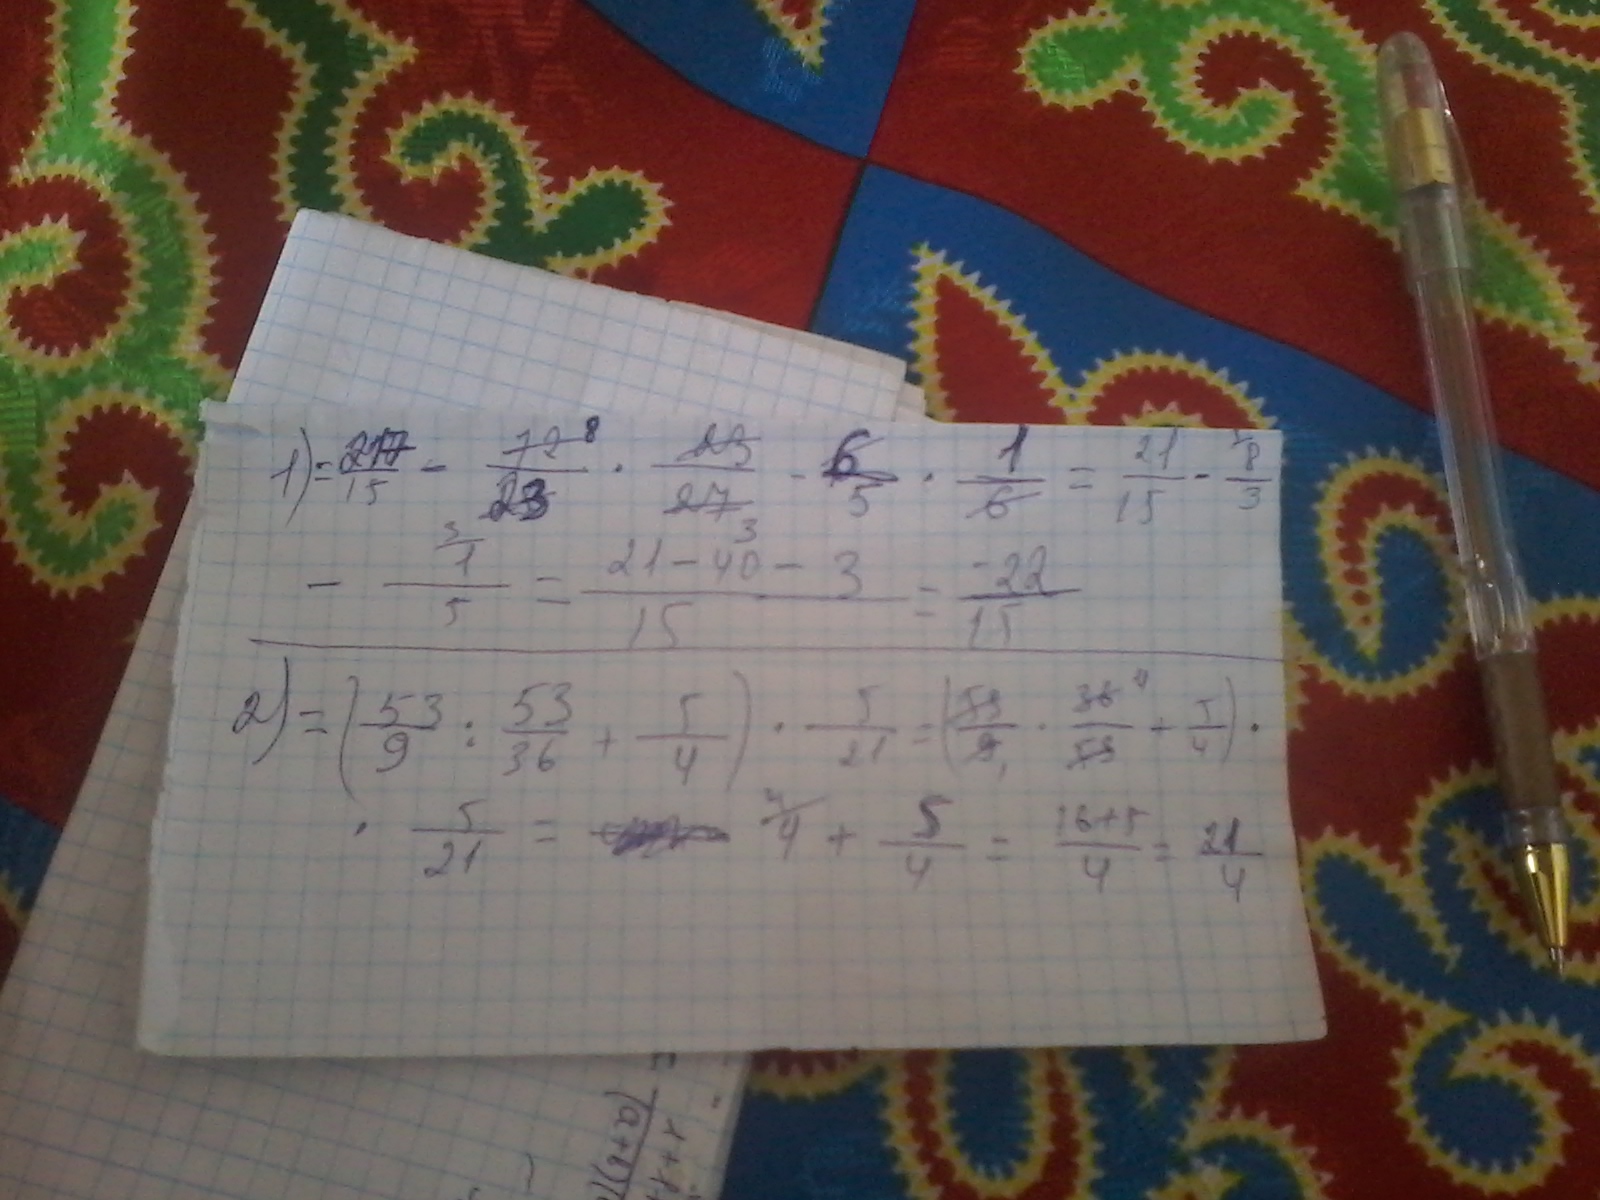 1) = 217/15 - 72/23 · 23/27 - 6/5 · 1/6 = 21/15 - 8/3
- 1/5 = (21 - 40 - 3)/15 = -22/15
2) = (53/9 : 53/36 + 5/4) · 5/21 = (53/9 · 36/53 + 5/4) ·
· 5/21 = 4/4 + 5/4 = (16+5)/4 = 21/4